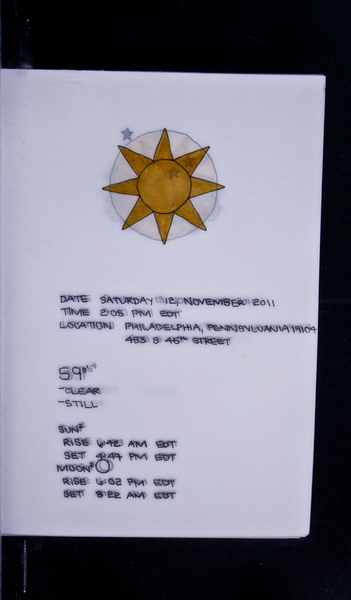 DATE SATURDAY 12 NOVEMBER 2011
TIME 2:05 PM EDT
LOCATION PHILADELPHIA, PENNSYLVANIA 19104
S 45TH STREET
59°
-CLEAR
-STILL
SUN
RISE 6:42 AM EDT
SET 4:47 PM EDT
MOON
RISE 6:02 PM EDT
SET 8:22 AM EDT